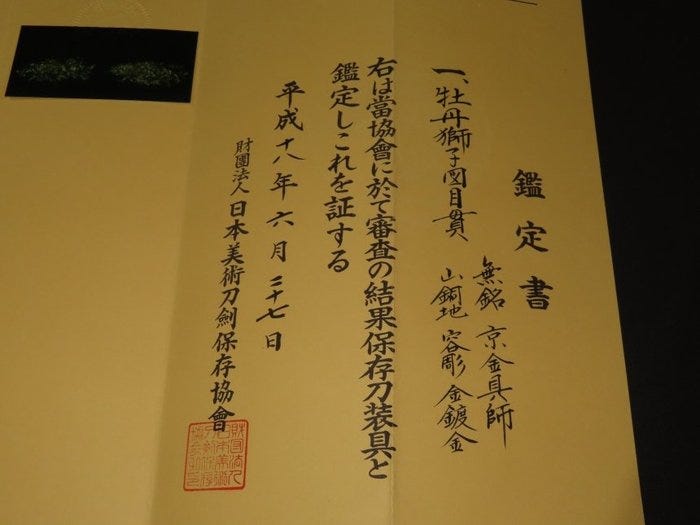 鑑定書
一、牡丹獅子図目貫
無銘 京金具師
山銅地 容彫 金鍍金
右は當協會に於て審査の結果保存刀装具と
鑑定しこれを証する
平成十八年六月二十七日
財團法人日本美術刀劍保存協會